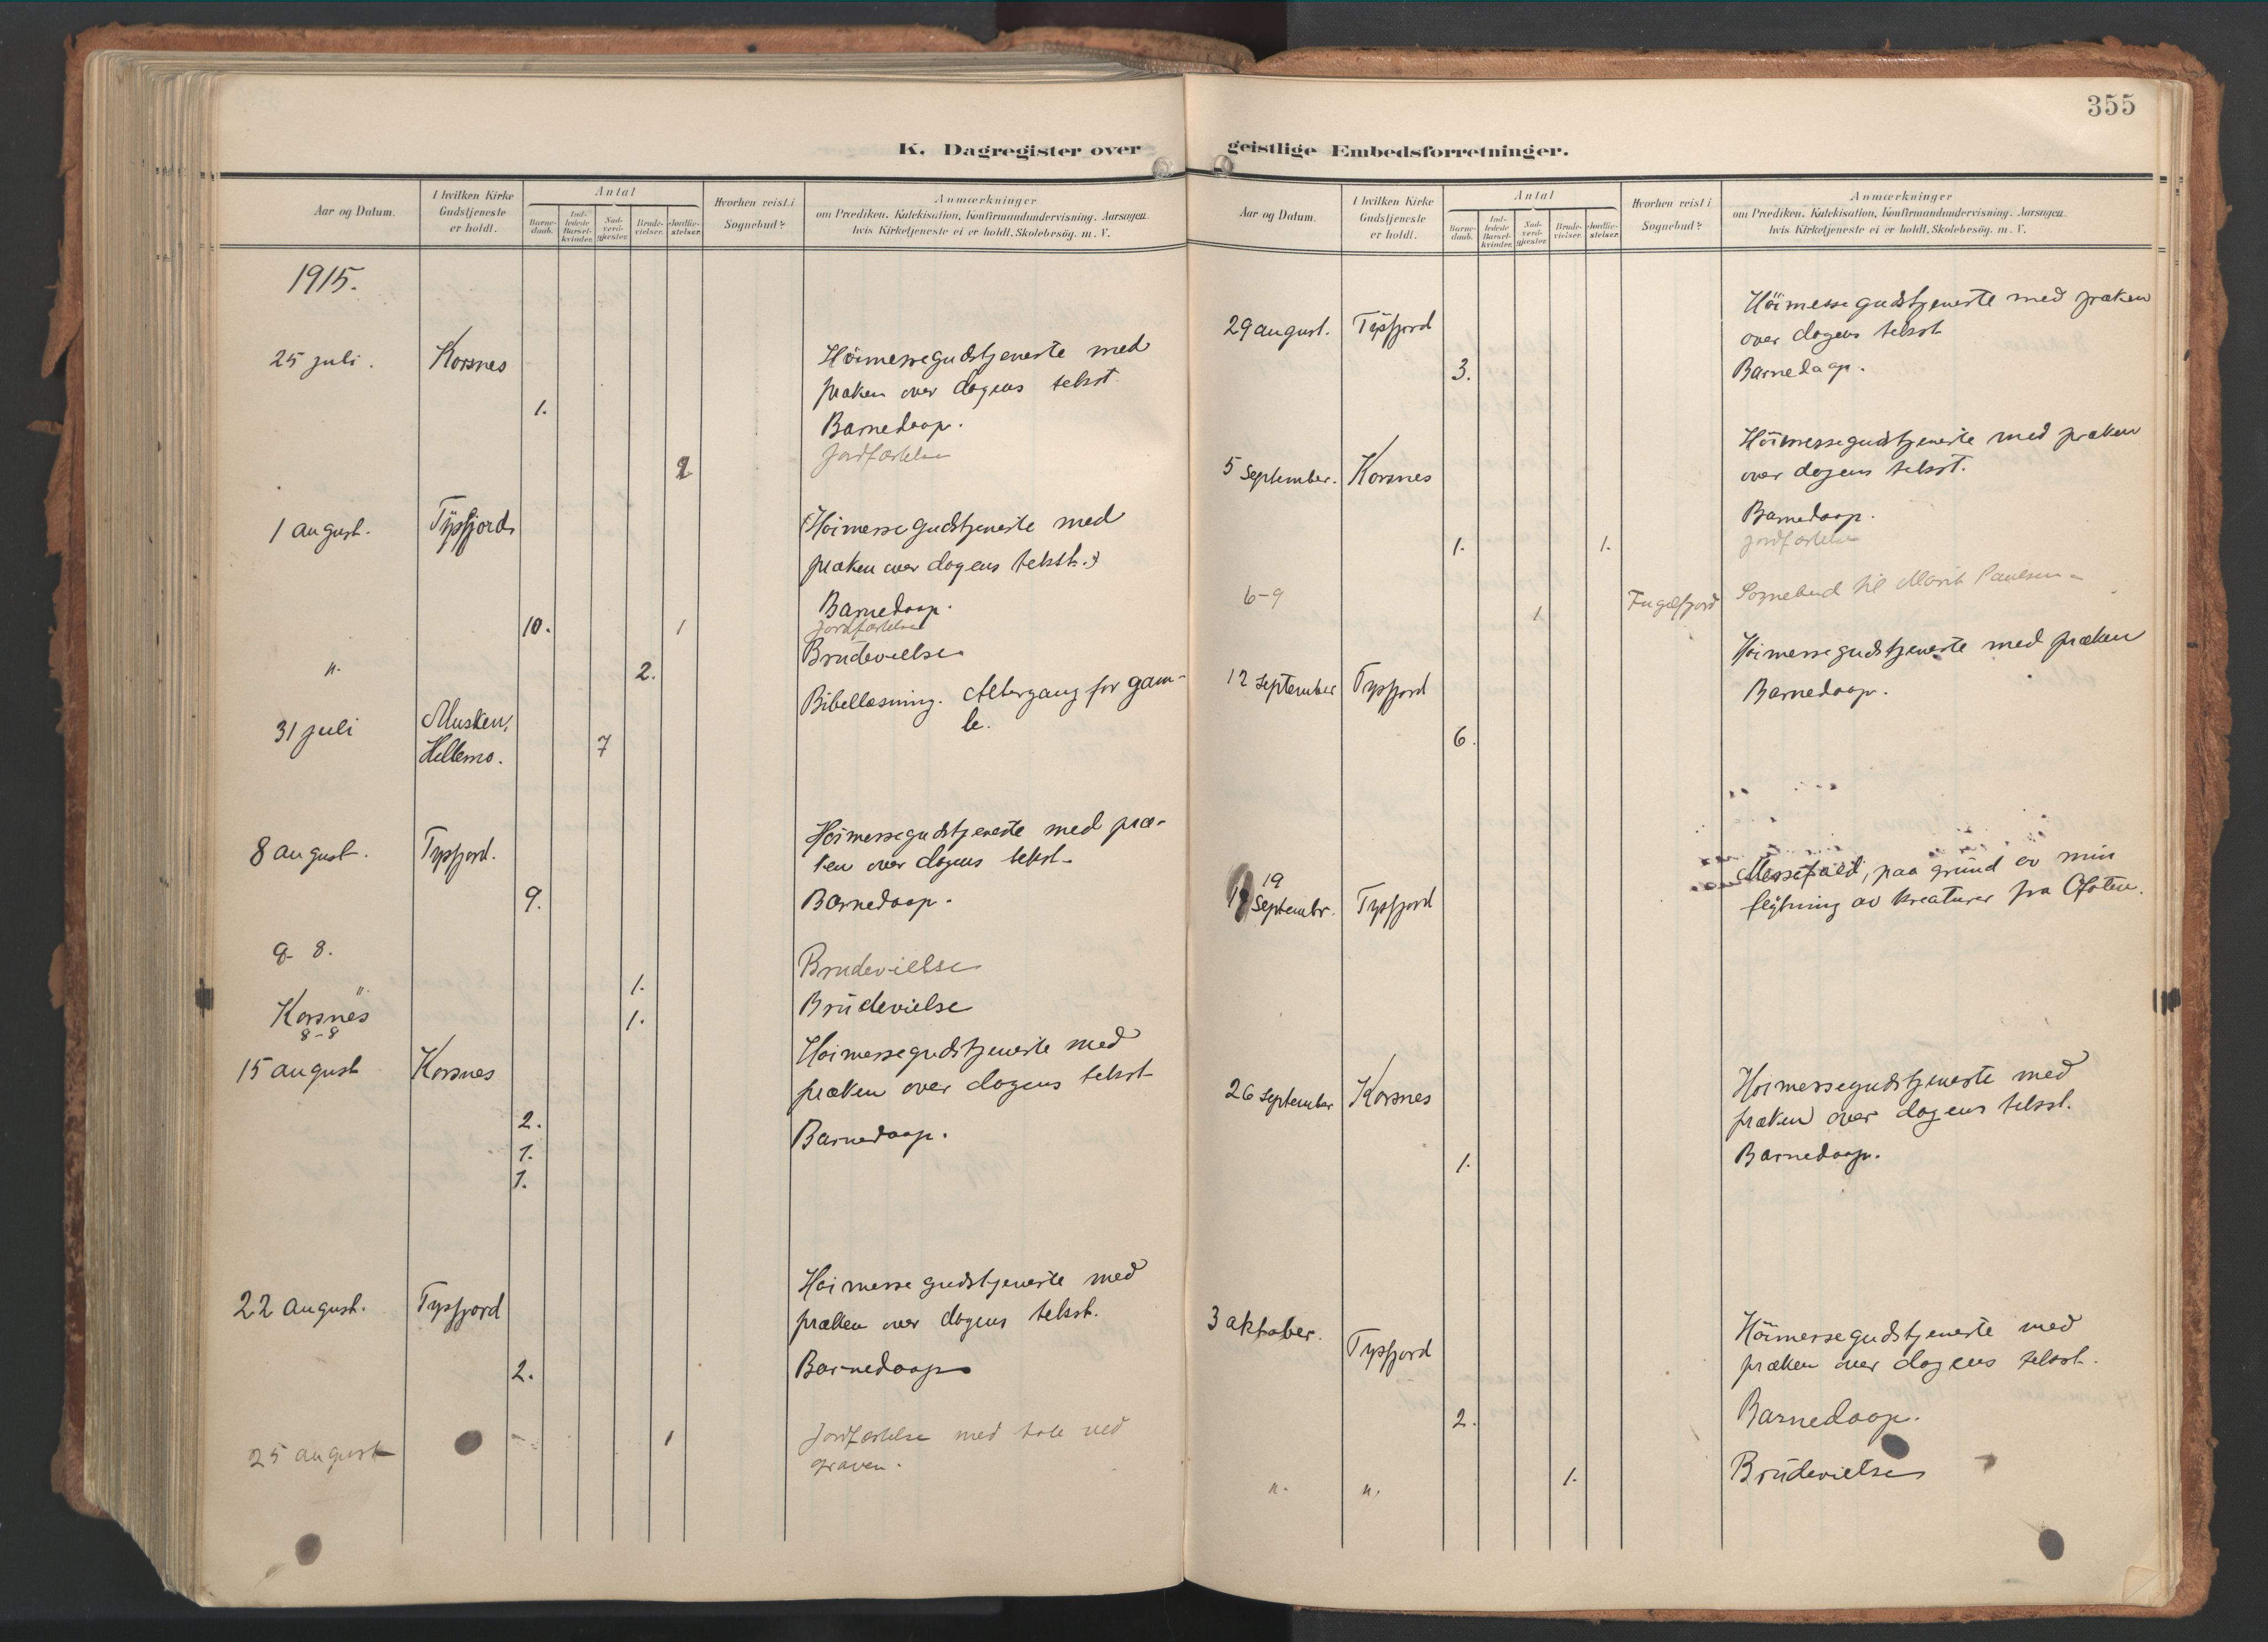 355
K. Dagregister over geistlige Embedsforretninger.
Aar og Datum.
I hvilken Kirke
Gudstjeneste
er holdt.
Antal
Barne-
daab.
Ind-
ledede
Barsel-
kvinder.
Nad-
verd-
gjester.
Brude-
vielser.
Jordfæ-
stelser.
Hvorhen reist i
Sognebud?
Anmærkninger
om Prædiken. Katekisation, Konfirmandundervisning. Aarsagen.
hvis Kirketjeneste ei er holdt. Skolebesög. m. V.
1915.
25 juli. Korsnes Höimessegudstjeneste med
præken over dagens tekst
1. Barnedaap.
2 Jordfæstelse
1 august. Tysfjord Höimessegudstjeneste med
præken over dagens tekst.
Barnedaap.
10. 1 Jordfæstelse
". 2. Brudevielse
Bibellæsning. Altergang for gam-
le.
31 juli Musken,
Hellemo. 7
8 august. Tysfjord. Höimessegudstjeneste med præ-
ken over dagens tekst.
9. Barnedaap.
9- 8. 1. Brudevielse
"
Korsnes 1. Brudevielse
8-8
15 august Korsnes Höimessegudstjeneste med
præken over dagens tekst
2. Barnedaap.
1.
1.
22 august. Tysfjord Höimessegudstjeneste med
præken over dagens tekst.
2. Barnedaap
25 august 1 Jordfæstelse med tale ved
graven.
Aar og Datum.
I hvilken Kirke
Gudstjeneste
er holdt.
Antal
Barne-
daab.
Ind-
ledede
Barsel-
kvinder.
Nad-
verd-
gjester.
Brude-
vielser.
Jordfæ-
stelser.
Hvorhen reist i
Sognebud?
Anmærkninger
om Prædiken. Katekisation, Konfirmandundervisning. Aarsagen.
hvis Kirketjeneste ei er holdt. Skolebesög. m. V.
29 august. Tysfjord Höimessegudstjeneste med præken
over dagens tekst
3. Barnedaap.
5 September. Korsnes Höimessegudstjeneste med præken
over dagens tekst.
Barnedaap.
1. 1. Jordfæstelse
6-9 1 Fuglfjord Sognebud til Marit Paulsen
12 September Tysfjord Höimessegudstjeneste med præken
Barnedaap.
6.
19
Septembr. Tysfjord Messefald, paa grund av min
flytning av kreaturer fra Ofoten.
26 September Korsnes Höimessegudstjeneste med
præken over dagens tekst.
1. Barnedaap.
3 aktober. Tysfjord Höimessegudstjeneste med
præken over dagens tekst.
2. Barnedaap.
". ". 1. Brudevielse